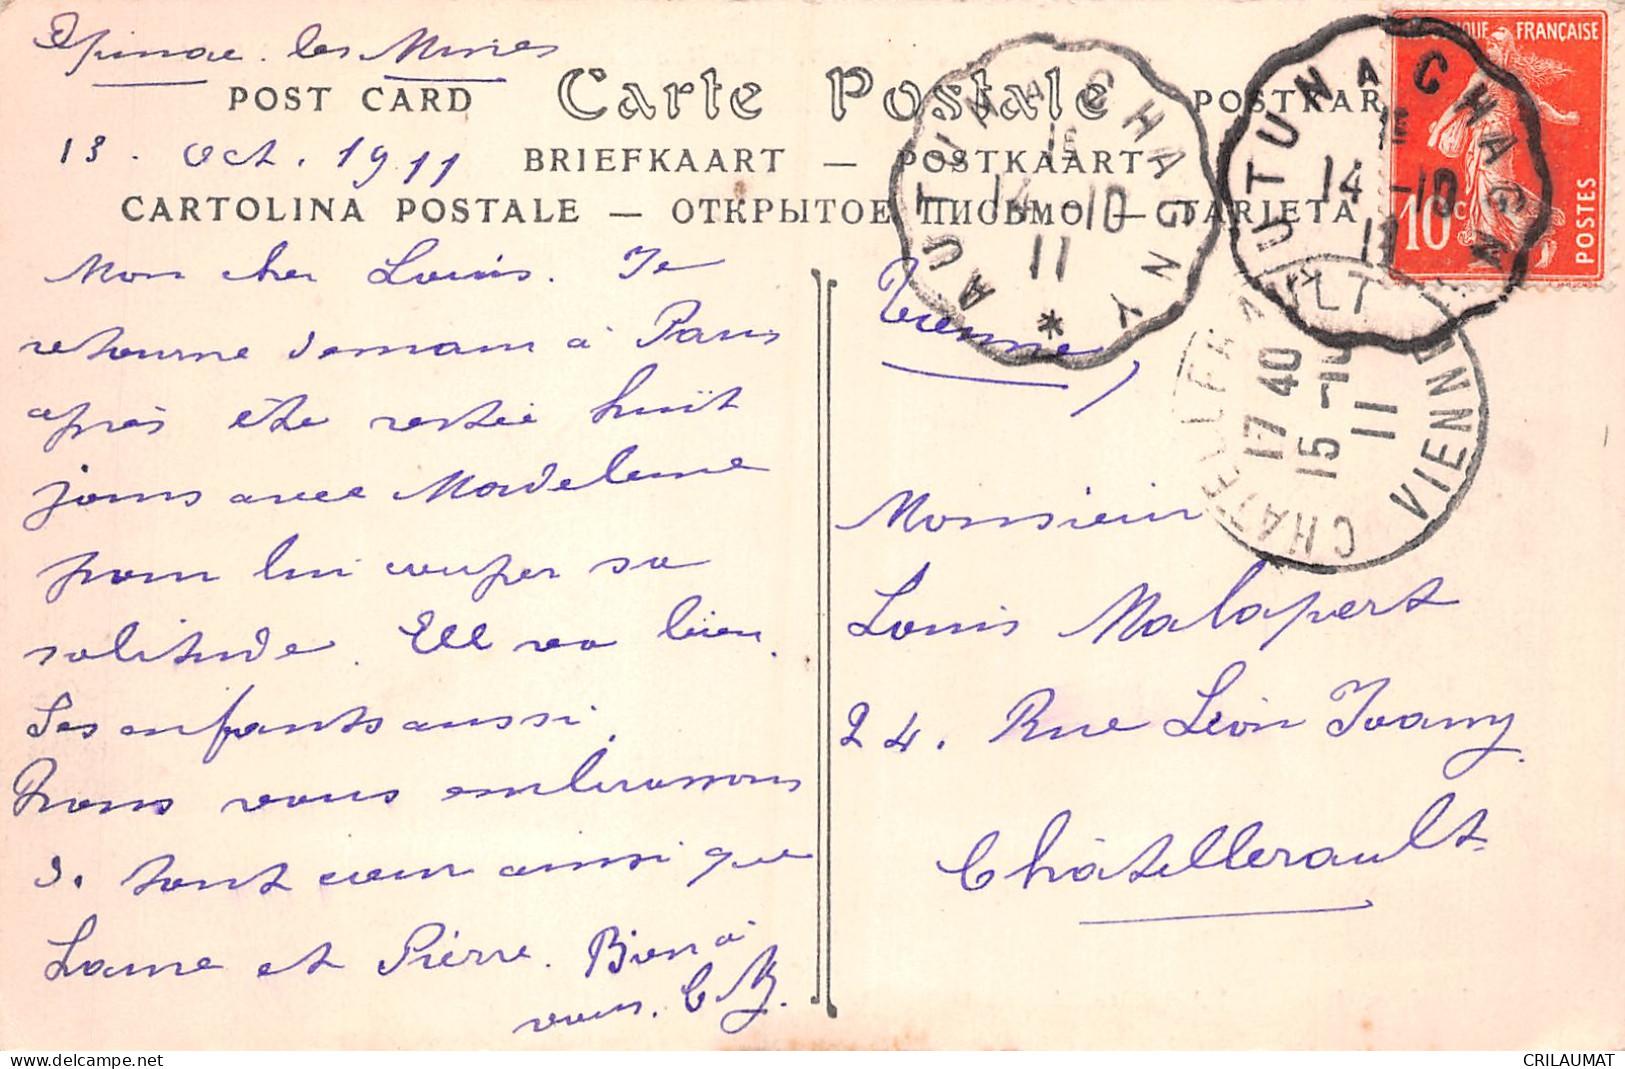 Epinac. les Mines
POST CARD
Carte Postale
POSTKAR
13. Oct. 1911
BRIEFKAART — POSTKAART
CARTOLINA POSTALE — ОТКРЫТОЕ ПИСЬМО — TARJETA
Mon cher Louis. Je
retourne demain à Paris
après être restée huit
jours avec Madeleine
pour lui couper sa
solitude. Ell va bien.
Ses enfants aussi.
Nous vous embrassons
d. tout cœur ainsi que
et Pierre. Bien à
vous.
Vienne,
Monsieur
Louis Malapert
24. Rue Léon
Châtellerault
AUTUN A CHAGNY
14 -10
11
*
AUTUN A CHAGNY
14 -10
11
RÉPUBLIQUE FRANÇAISE
10c
POSTES
CHATELLERAULT
VIENNE
17 40
15 -10
11
delcampe.net
CRILAUMAT